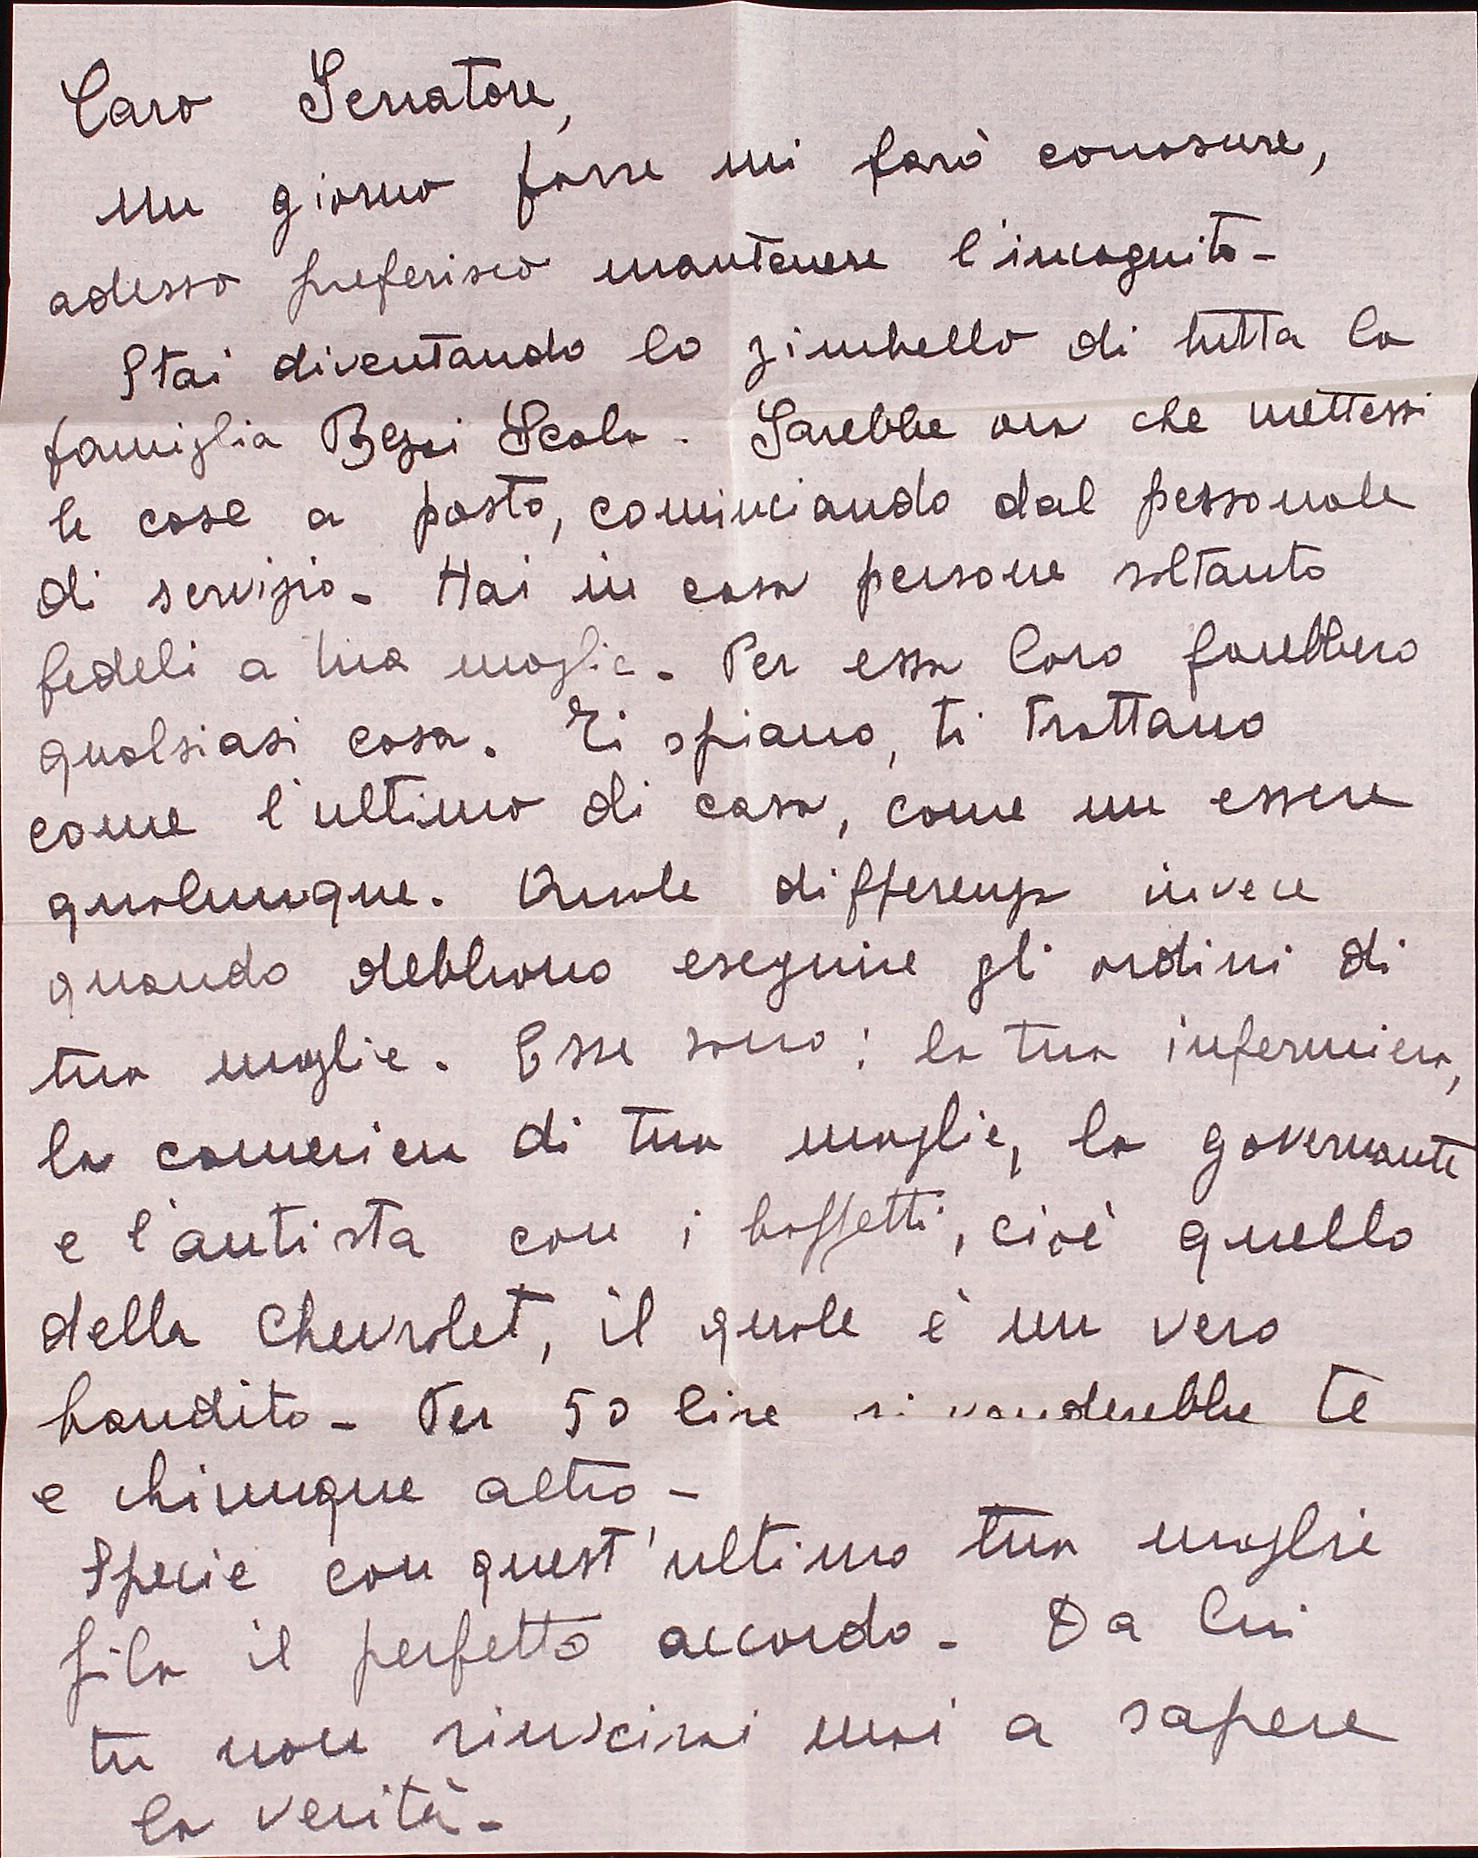 Caro Senatore,
un giorno forse mi farò conoscere,
adesso preferisco mantenere l'incognito -
Stai diventando lo zimbello di tutta la
famiglia Scala. Sarebbe ora che mettessi
le cose a posto, cominciando dal personale
di servizio - Hai in casa persone soltanto
fedeli a tua moglie. Per essa loro farebbero
qualsiasi cosa. Ti spiano, ti trattano
come l'ultimo di casa, come un essere
qualunque. Quale differenza invece
quando debbono eseguire gli ordini di
tua moglie. Esse sono: la tua infermiera,
la cameriera di tua moglie, la governante
e l'autista con i baffetti, cioè quello
della Chevrolet, il quale è un vero
bandito - Per 50 lire si venderebbe te
e chiunque altro -
Specie con quest'ultimo tua moglie
fila il perfetto accordo - Da lui
tu non riuscirai mai a sapere
la verità -